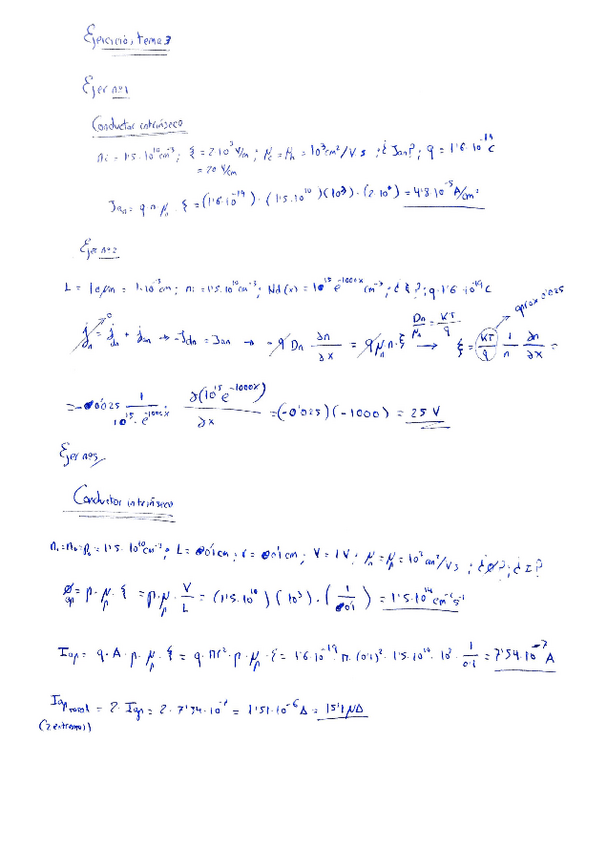 Ejercicios tema 3
Ejer nº1
Conductor intrínseco
ni = 1'5·10^10 cm^-3 ; ξ = 2·10^3 V/m ; μe = μh = 10^3 cm²/V s ; ¿Jan? ; q = 1'6·10^-19 C
= 20 V/cm
Jan = q n μ · ξ = (1'6·10^-19)·(1'5·10^10)(10^3)·(2·10^1) = 4'8·10^-5 A/cm²
Ejer nº2
L = 10 μm = 1·10^-3 cm ; ni = 1'5·10^10 cm^-3 ; Nd(x) = 10^15 e^-1000x cm^-3 ; ¿ξ? ; q 1'6·10^-19 C
jn = jdn + jan → -Jdn = Jan → -q Dn ∂n/∂x = q μn n·ξ → Dn/μn = KT/q ξ = KT/q 1/n ∂n/∂x = aprox 0'025
= -0'025 1/10^15·e^-1000x ∂(10^15 e^-1000x)/∂x = (-0'025)(-1000) = 25 V
Ejer nº3
Conductor intrínseco
ni = no = po = 1'5·10^10 cm^-3 ; L = 0'1 cm ; r = 0'1 cm ; V = 1V ; μn = μp = 10^3 cm²/V s ; ¿Ø? ; ¿I?
Øap = p·μp·ξ = p·μp·V/L = (1'5·10^10)(10^3)·(1/0'1) = 1'5·10^14 cm^-2 s^-1
Iap = q·A·p·μp·ξ = q·πr²·p·μp·ξ = 1'6·10^-19·π·(0'1)²·1'5·10^10·10^3·1/0'1 = 7'54·10^-7 A
Iap total = 2·Iap = 2·7'54·10^-7 = 1'51·10^-6 A = 15'1 μA
(2 extremos)